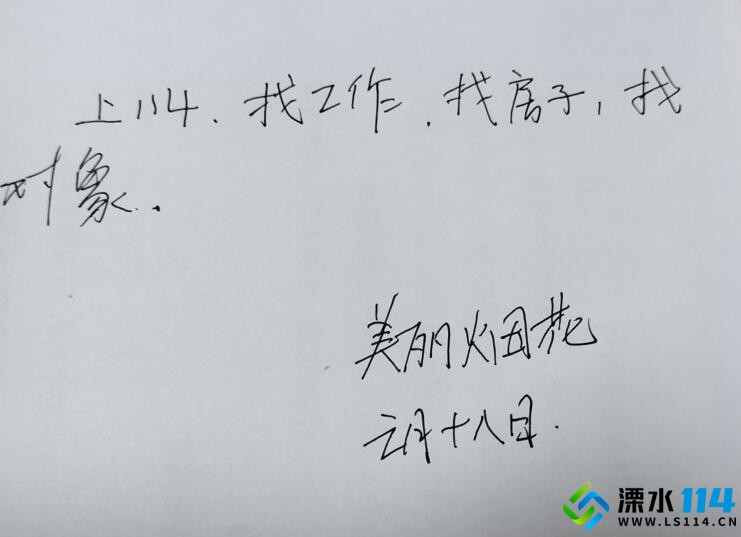 上114、找工作、找房子,找
对象..
美丽烟花
二月十八日.
溧水114
WWW.LS114.CN